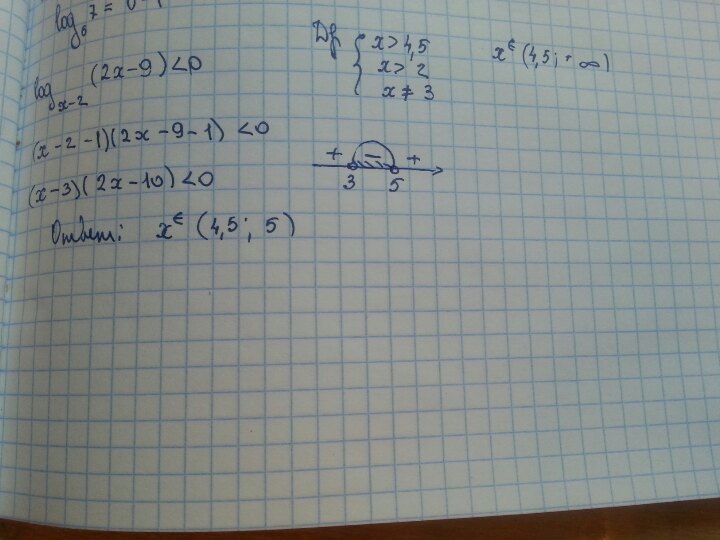 log₆7 =
log_{x-2} (2x-9) < 0
(x-2-1)(2x-9-1) < 0
(x-3)(2x-10) < 0
Ответ: x ∈ (4,5; 5)
Df { x > 4,5
x > 2
x ≠ 3
x ∈ (4,5; +∞)
+ − +
3 5